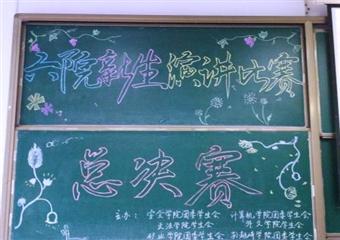 六院新生演讲比赛
总决赛
主办：安全学院团委学生会 计算机学院团委学生会
文法学院团委学生会 外文学院团委学生会
矿业学院团委学生会